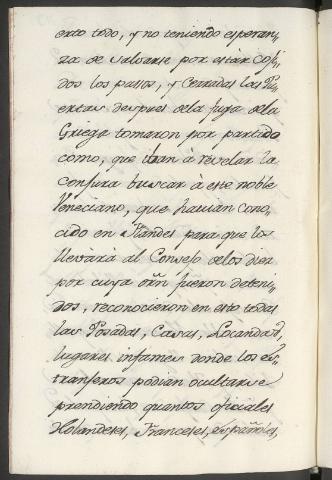 erto todo, y no teniendo esperan,,
za de salvarse por estàr cogi,,
dos los passos, y cerradas las Pu,,
ertas despues dela fuga dela
Griega tomaron por partido
como, que iban à revelar la
conjura buscar à este noble
Veneciano, que havian cono,,
cido en Flandes para que los
llevàra al Consejo delos diez
por cuya orñ fueron deteni,,
dos, reconocieron en esto todas
las Posadas, Casas, Locandas,
lugares infames donde los es,,
tranferos podian ocultarse
prendiendo quantos oficiales
Holandeses, Franceses, españoles,